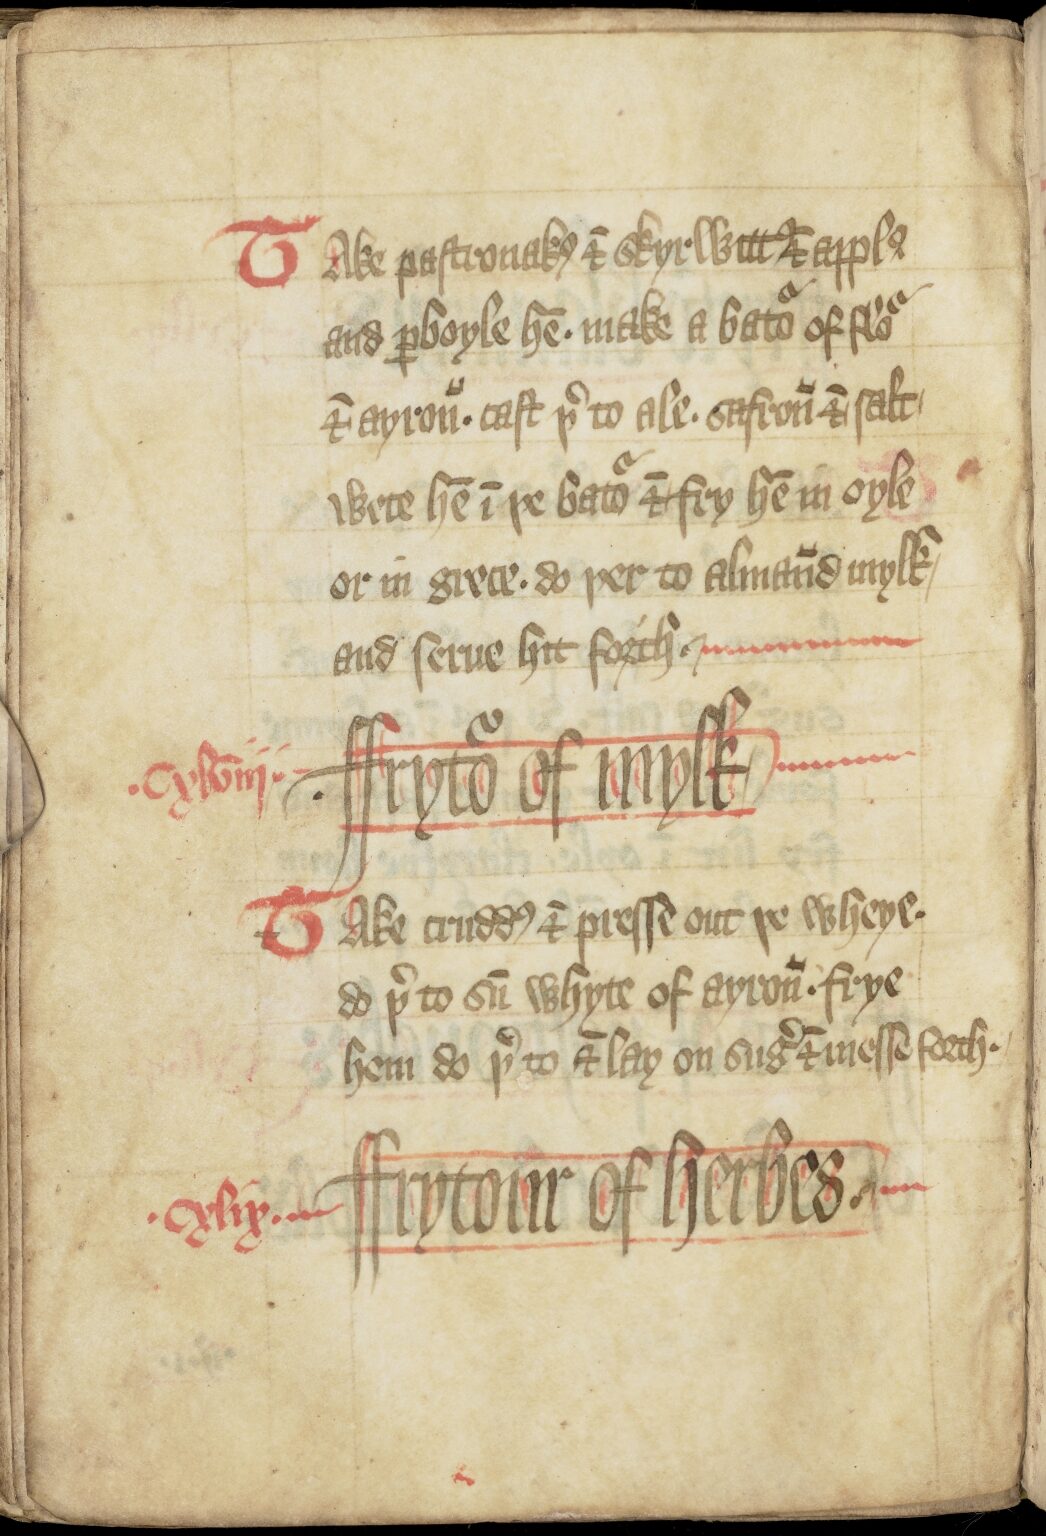 Take pastronakꝭ ⁊ skyrwitt ⁊ applꝭ
and ꝑboyle hē. make a batoͬ of floͬ
⁊ ayroū. cast þͤ to ale. safroū ⁊ salt
wete hē ī þe batoͬ ⁊ fry hē in oyle
or in grece. do þer to almaūd mylk
and serue hit forth.
.cxlviij. ffrytoͬ of mylk
Take cruddꝭ ⁊ presse out þe wheye.
do þͤ to sū whyte of ayroū. frye
hem do þͤ to ⁊ lay on sugͬ ⁊ messe forth.
.cxlix. ffrytour of herbes.